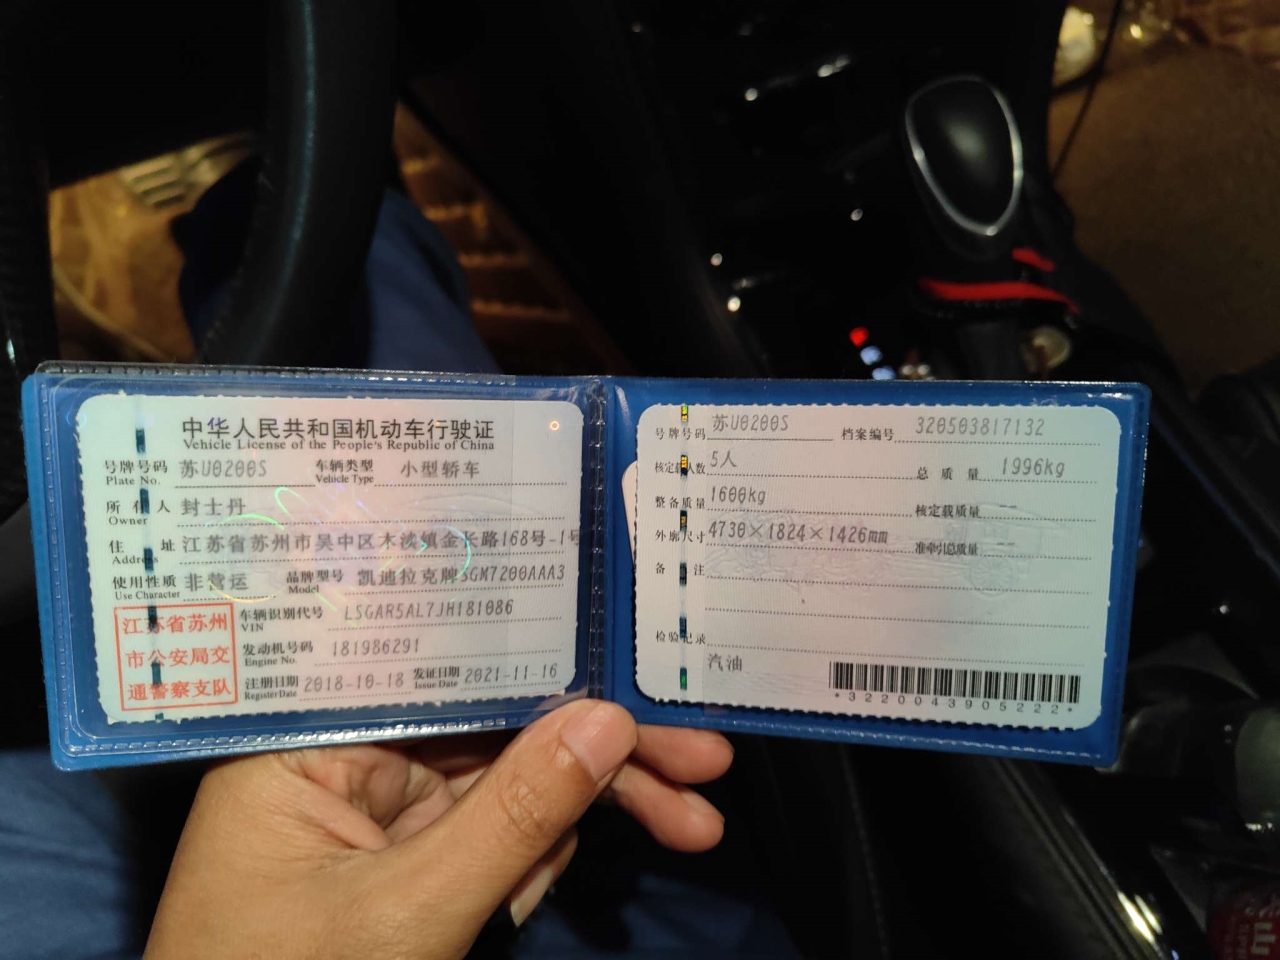 中华人民共和国机动车行驶证
Vehicle License of the People's Republic of China
号牌号码 苏U0200S 车辆类型 小型轿车
Plate No. Vehicle Type
所有人 封士丹
Owner
住址 江苏省苏州市吴中区木渎镇金长路168号-1号
Address
使用性质 非营运 品牌型号 凯迪拉克牌SGM7200AAA3
Use Character Model
江苏省苏州
市公安局交
通警察支队
车辆识别代号 LSGAR5AL7JH181086
VIN
发动机号码 181986291
Engine No.
注册日期 2018-10-18 发证日期 2021-11-16
Register Date Issue Date
号牌号码 苏U0200S 档案编号 320503817132
核定载人数 5人 总质量 1996kg
整备质量 1600kg 核定载质量 --
外廓尺寸 4730×1824×1426mm 准牵引总质量 --
备注
检验记录
汽油
*3220043905222*